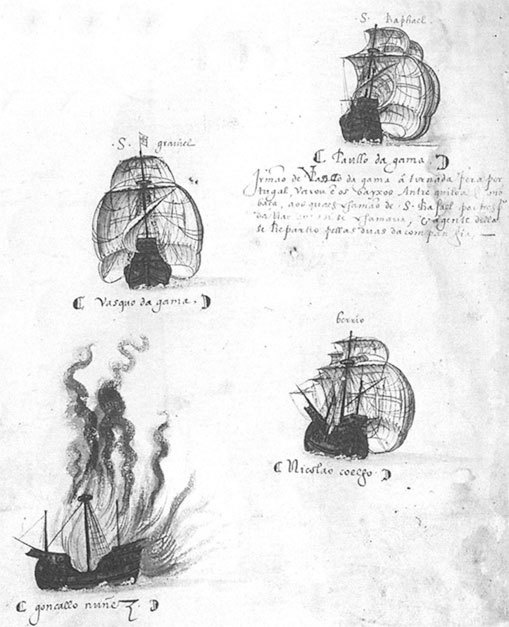 · S · Raphael.
Paullo da gama.
Irmão de Vasco da gama á tornada pera por
tugal, varou nos bayxos Antre quiloa e mo
baça, aos quaes chamão de · S · Rafael por
se Repartio pellas duas da companhia.
· S · graviel
Vasquo da gama.
berrio
Nicolao coelho.
goncallo nuñez